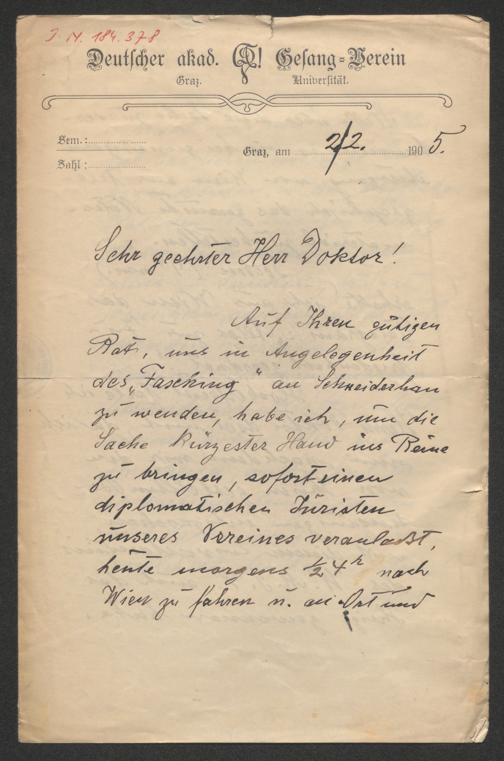 J. N. 184.378
Deutscher akad. G! Gesang-Verein
Graz. Universität.
Sem.:
Zahl:
Graz, am 2/2. 1905.
Sehr geehrter Herr Doktor!
Auf Ihren gütigen
Rat, uns in Angelegenheit
des „Fasching" an Schneiderhan
zu wenden, habe ich, um die
Sache kürzester Hand ins Reine
zu bringen, sofort einen
diplomatischen Juristen
unseres Vereines veranlaßt,
heute morgens ½ 4 h nach
Wien zu fahren u. an Ort und